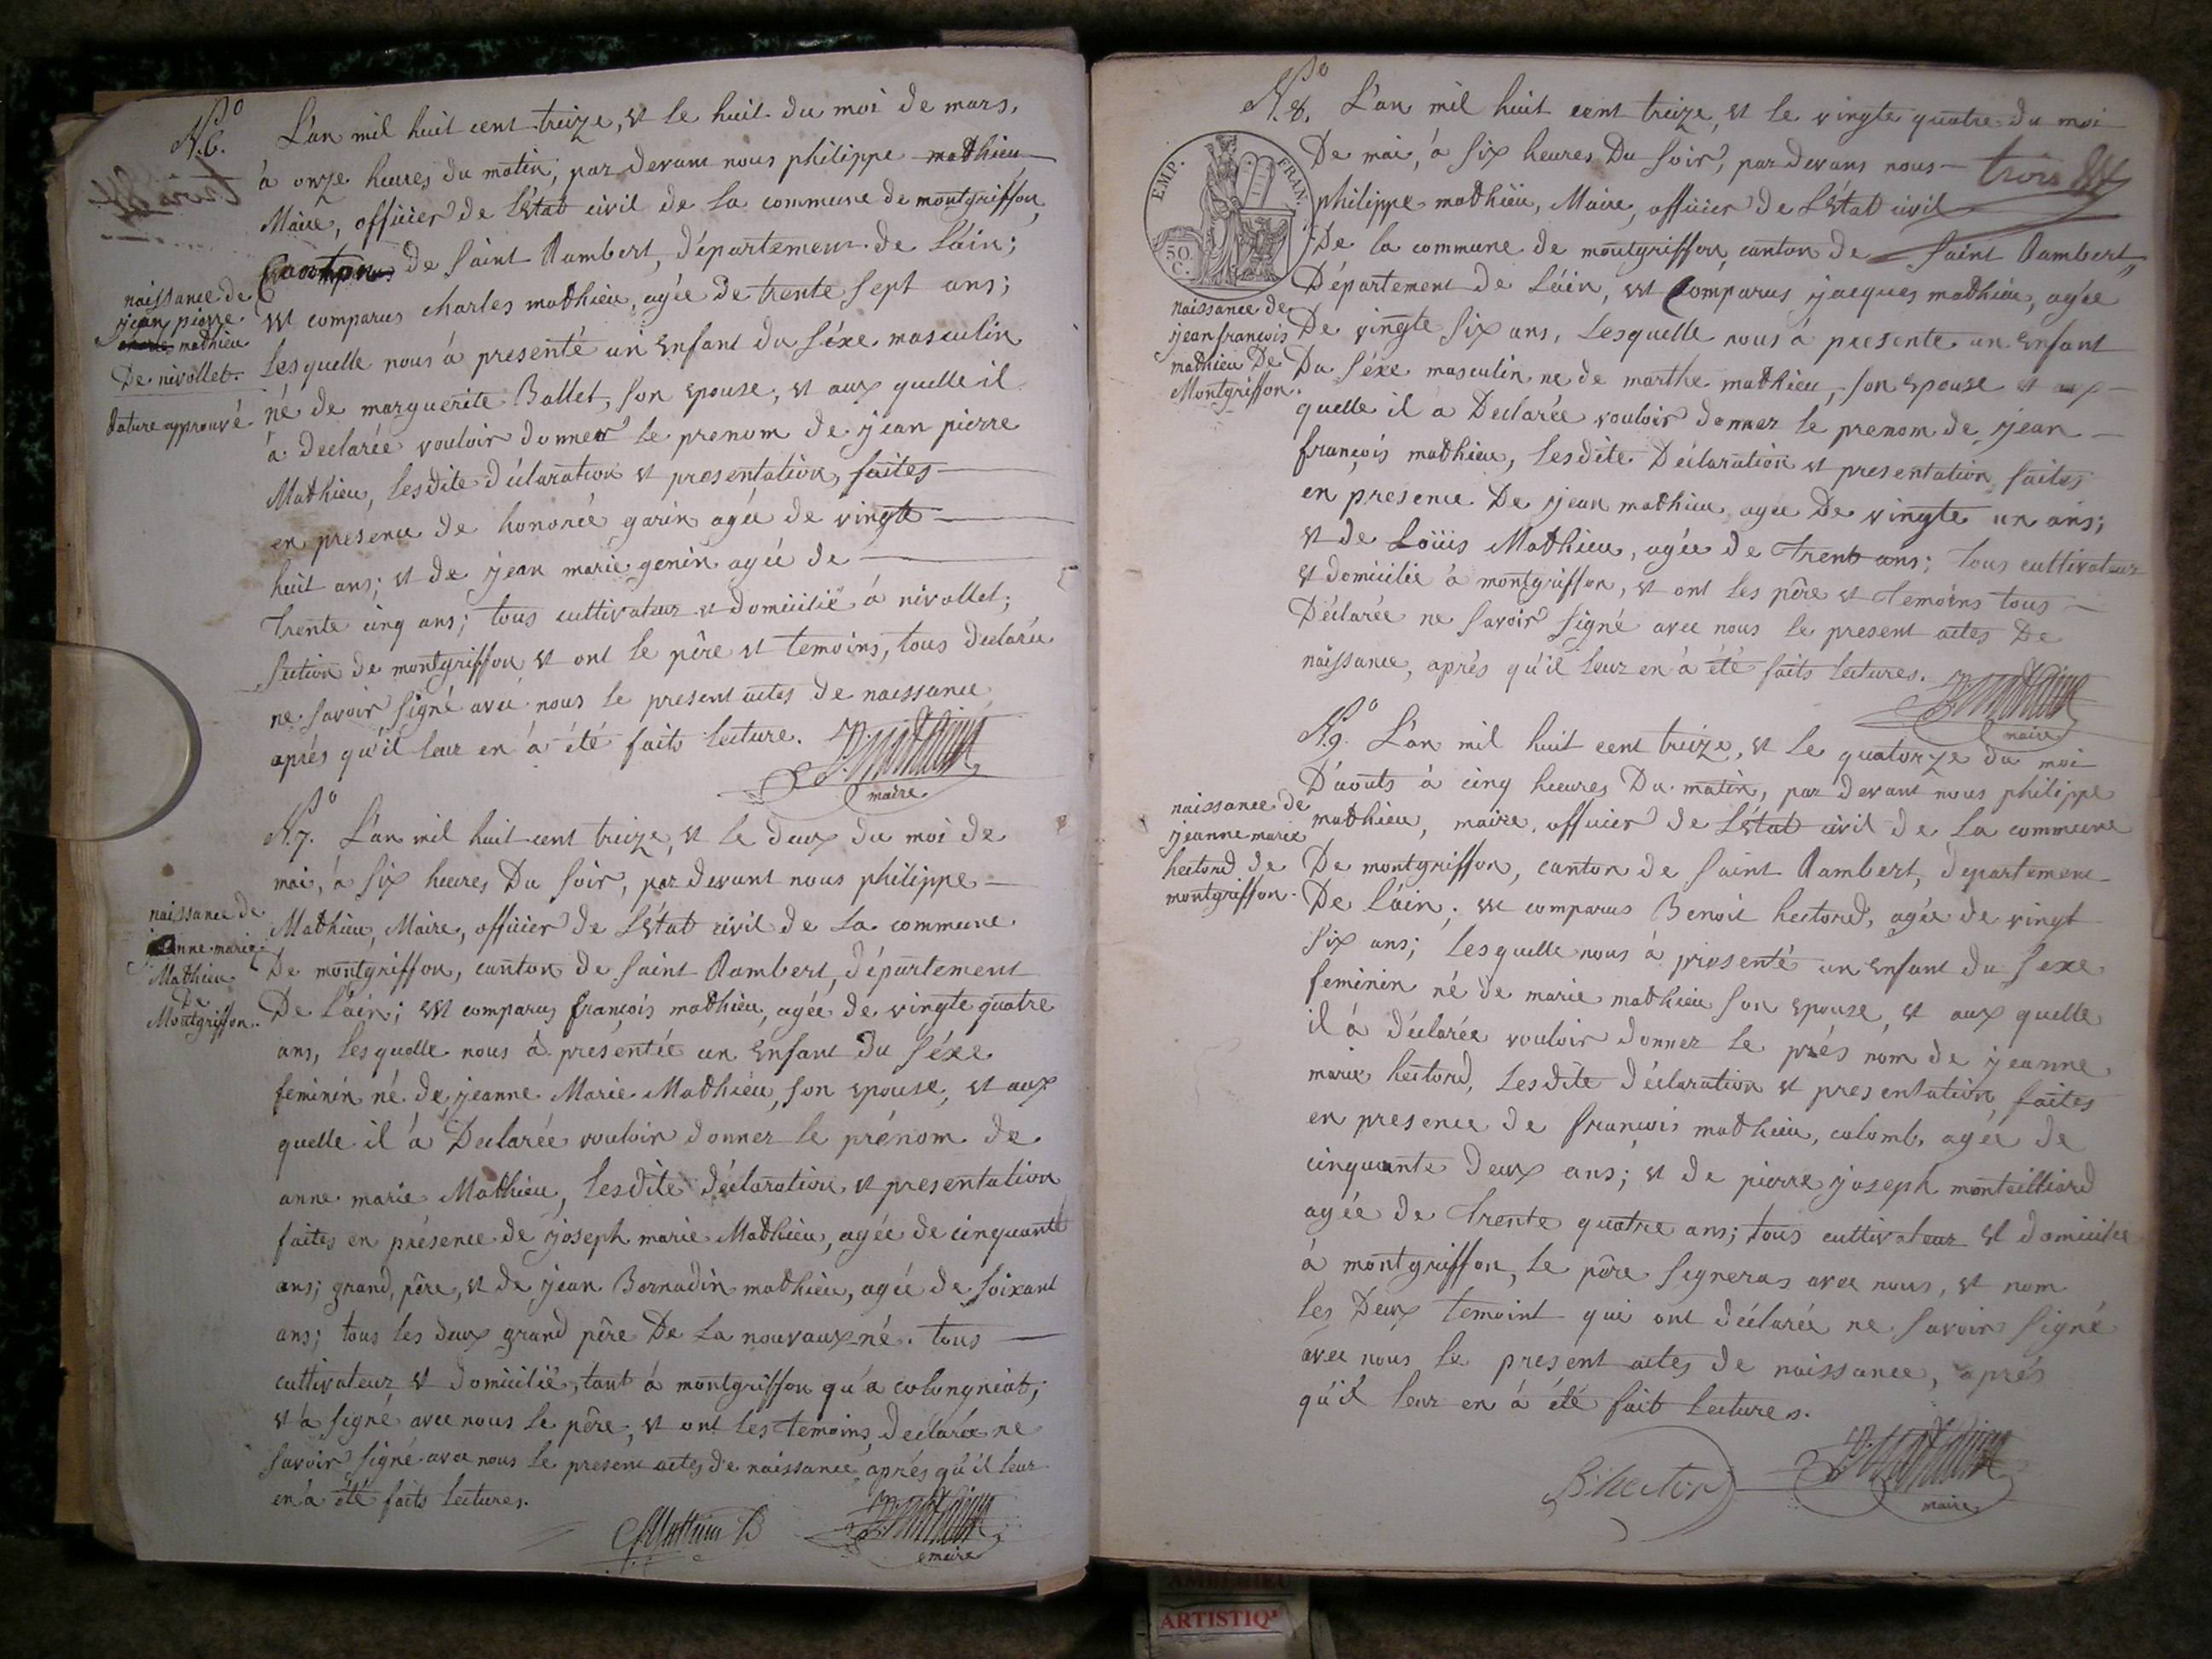 N.o 6. L'an mil huit cent treize, et le huit du moi de mars,
à onze heures du matin, par devant nous philippe mathieu
Maire, officier de l'état civil de la commune de montgriffon,
Canton de Saint Rambert, département de l'ain;
est comparus charles mathieu, agée de trente sept ans;
lesquelle nous à presenté un enfant du séxe masculin
né de marguerite Ballet, son epouse, et aux quelle il
à declarée vouloir donner le prenom de jean pierre
Mathieu, lesdite déclaration et presentation, faites
en presence de honorée garin agée de vingte
huit ans; et de jean marie genin agée de
trente cinq ans; tous cultivateur et domicilié à nivollet;
section de montgriffon et ont le pêre et temoins, tous declarée
ne savoir signé avec nous le present actes de naissance
aprés qu'il leur en à été faits lecture.
P. Mathieu
maire
naissance de
jean pierre
mathieu
De nivollet.
Rature approuvé
N.o 7. L'an mil huit cent treize, et le deux du moi de
mai, à six heures Du soir, par devant nous philippe
Mathieu, Maire, officier de l'état civil de la commune
De montgriffon, canton de Saint Rambert, département
De l'ain; est comparus françois mathieu, agée de vingte quatre
ans, lesquelle nous à presentée un enfant du séxe
feminin né de jeanne Marie Mathieu, son epouse, et aux
quelle il à Declarée vouloir donner le prénom de
anne marie Mathieu, lesdite déclaration et presentation
faites en présence de joseph marie Mathieu, agée de cinquante
ans; grand, pêre, et de jean Bernadin mathieu, agée de soixant
ans; tous les deux grand pêre De la nouvaux-né. tous
cultivateur et domicilié, tant à montgriffon qu'a colongniat;
et à signé avec nous le pêre, et ont les temoins, declarée ne
savoir signé avec nous le present actes de naissance, aprés qu'il leur
en à été faits lectures.
P. Mathieu
maire
naissance de
anne marie
Mathieu
De
Montgriffon.
N.o 8. L'an mil huit cent treize, et le vingte quatre du moi
De mai, à six heures Du soir, par devans nous
trois
philippe mathieu, Maire, officier de l'état civil
De la commune de montgriffon, canton de Saint Rambert,
Département de l'ain, est Comparus jacques mathieu, agée
De vingte six ans, lesquelle nous à presente un enfant
Du séxe masculin ne de marthe mathieu, son epouse et aux
quelle il a Declarée vouloir donner le prenom de jean
françois mathieu, lesdite Déclaration et presentation faites
en presence De jean mathieu agée De vingte un ans;
et de Loüis Mathieu, agée de trent ans; tous cultivateur
et domicilié à montgriffon, et ont les pêre et temoins tous
Déclarée ne savoir signé avec nous le present actes De
naissance, aprés qu'il leur en à été faits lectures.
P. Mathieu
maire
EMP. FRAN.
50 C.
naissance de
jean françois
mathieu De
Montgriffon.
N.o 9. L'an mil huit cent treize, et le quatorze du moi
D'aouts à cinq heures Du matin, par devant nous philippe
mathieu, maire, officier de l'état civil de la commune
De montgriffon, canton de Saint Rambert, departement
De l'ain; est comparus Benoit hectord, agée de vingt
six ans; lesquelle nous à presenté un enfant du sexe
feminin né de marie mathieu son epouse, et aux quelle
il à déclarée vouloir donner le prés nom de jeanne
marie hectord, lesdite déclaration et presentation, faites
en presence de françois mathieu, colomb, agée de
cinquante deux ans; et de pierre joseph monteilliard
agée de trente quatre ans; tous cultivateur et domicilié
à montgriffon, le pêre signeras avec nous, et nom
les Deux temoint qui ont déclarée ne savoir signé
avec nous le present actes de naissance, aprés
qu'il leur en à été fait lectures.
B. hector
P. Mathieu
maire
naissance de
jeanne marie
hectord de
montgriffon.
AMBERIEU
ARTISTIQ